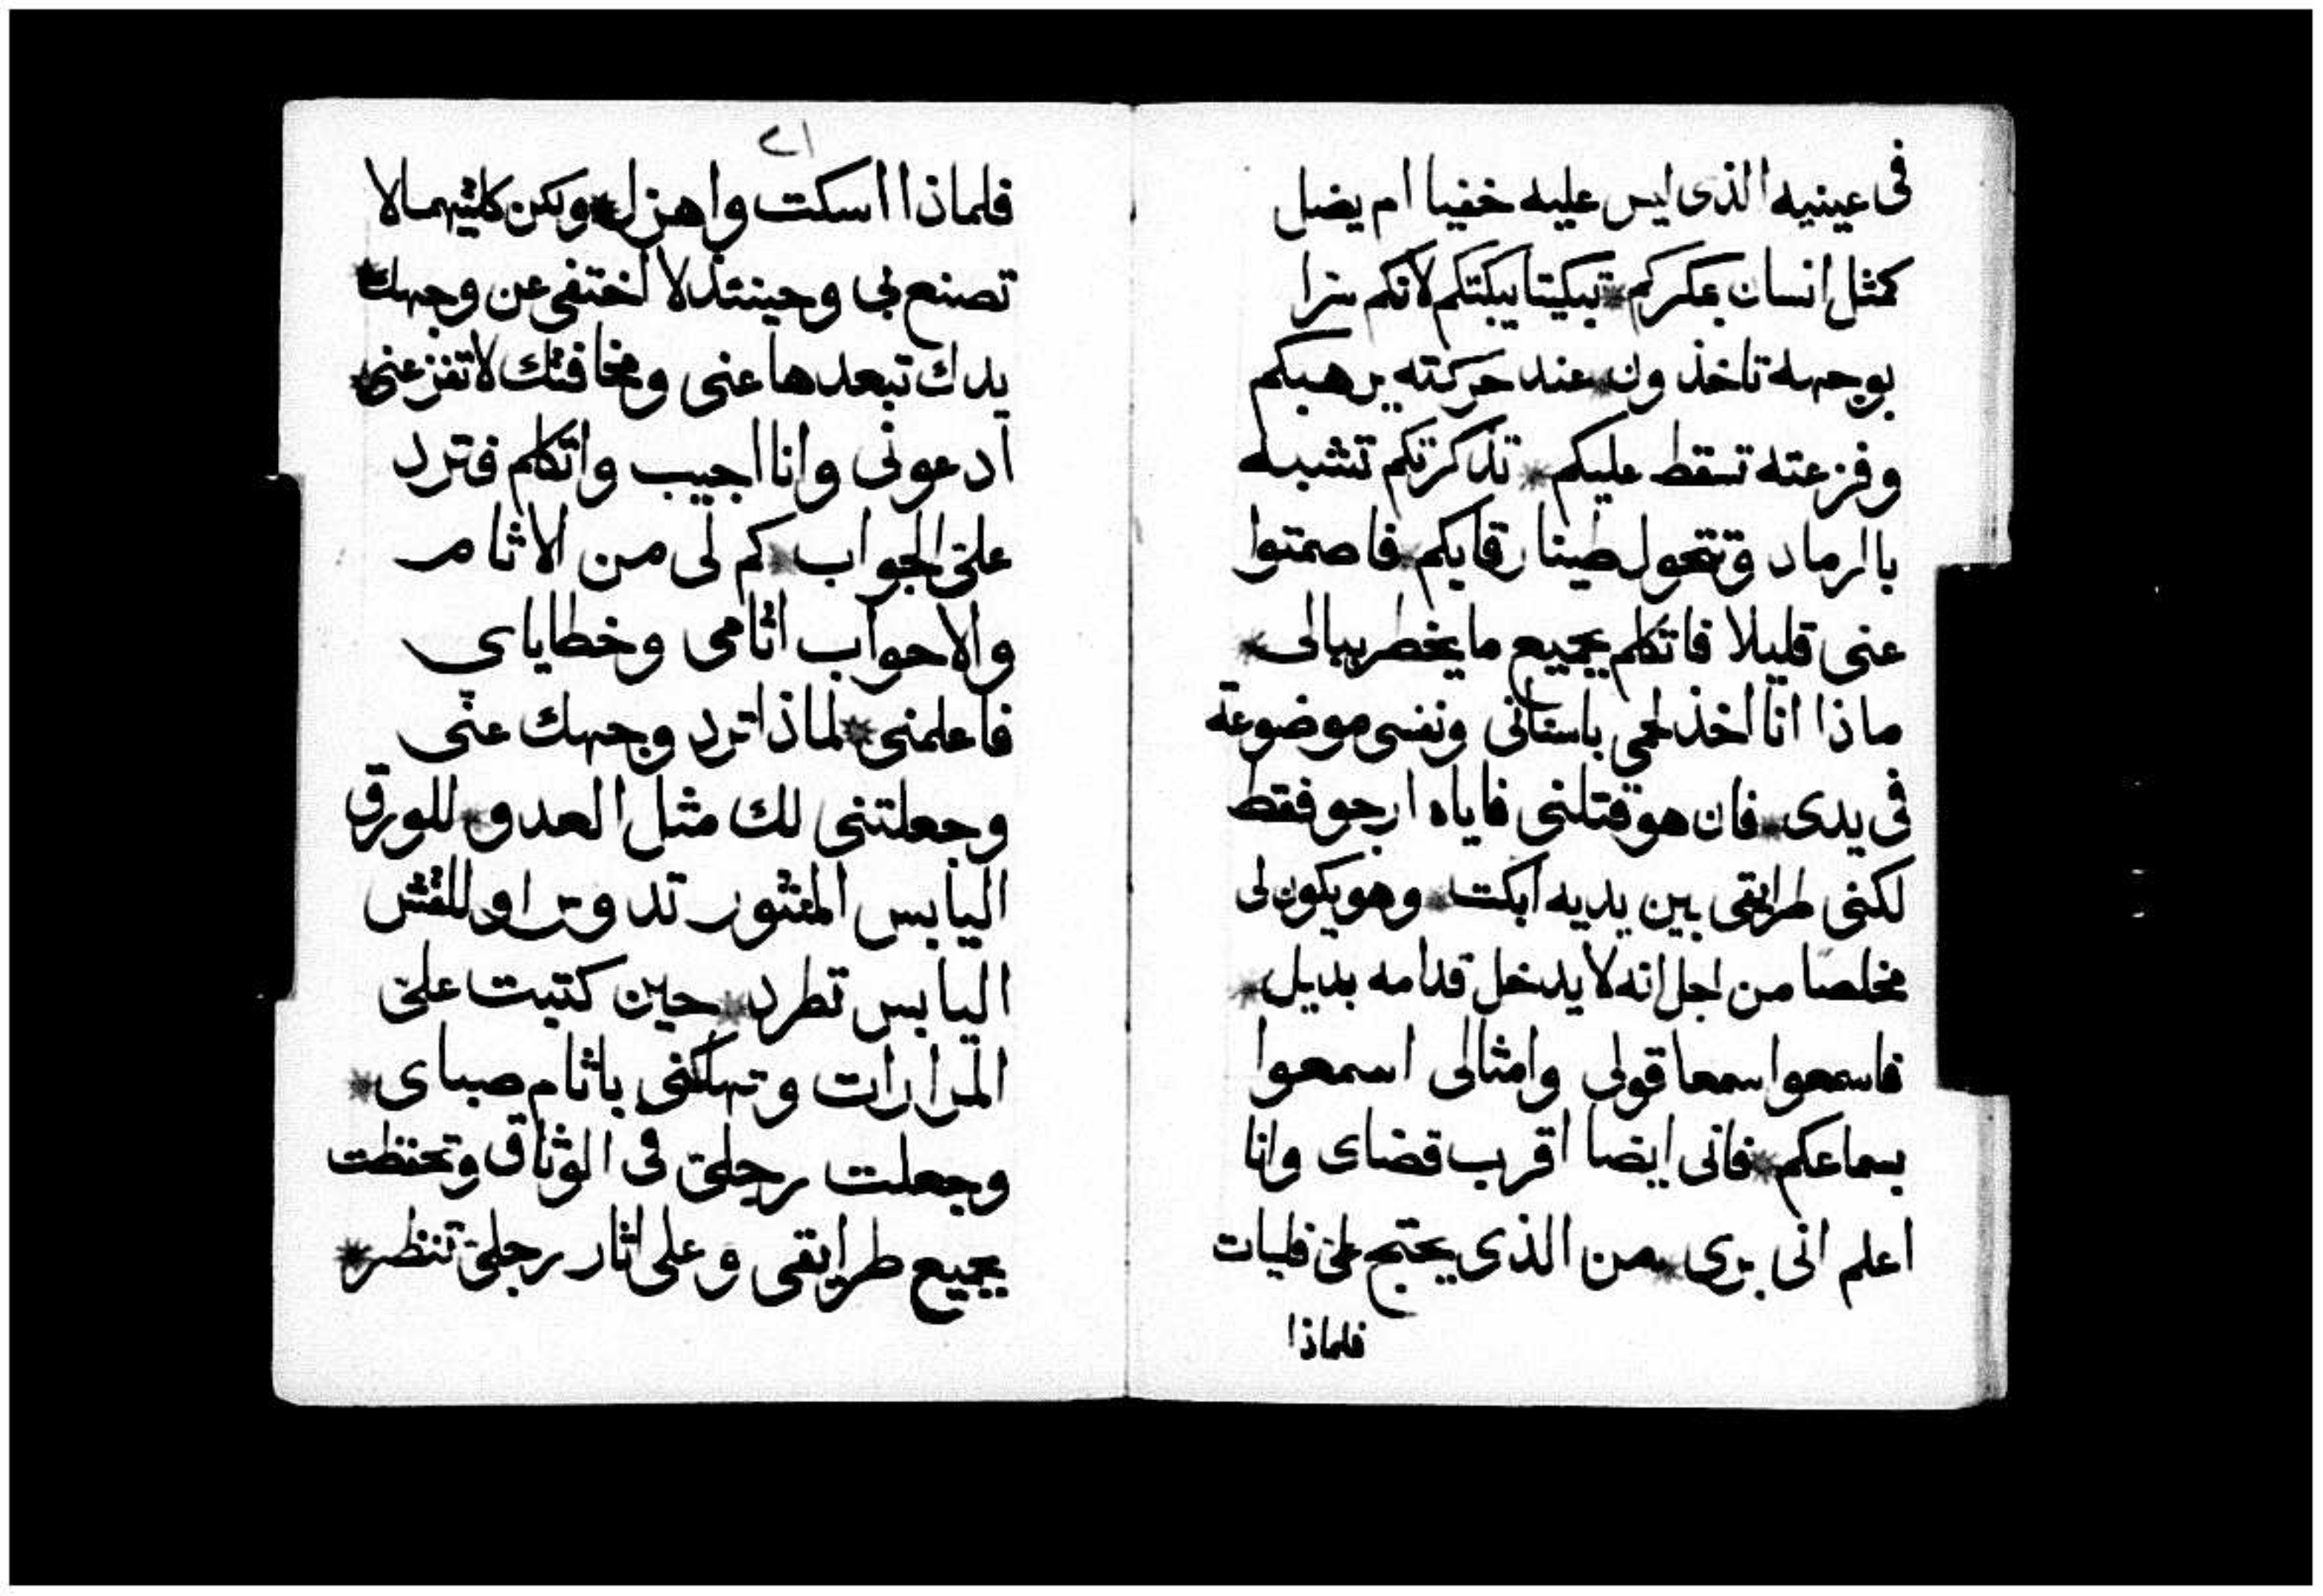 فى عينيه الذى ليس عليه خفيا ام يضل
كمثل انسان بمكركم * تبكيتا يبكتكم لانكم سرا
بوجهه تاخذون * عند حركته يرهبكم
وفزعته تسقط عليكم * تذكرتكم تشبه
بالرماد وتتحول طينا رقابكم * فاصمتوا
عنى قليلا فاتكلم بجميع ما يخطر ببالى *
ماذا انا اخذ لحمي باسناني ونفسى موضوعة
فى يدى * فان هو قتلنى فاياه ارجو فقط
لكنى طرايقى بين يديه ابكت * وهو يكون لى
مخلصا من اجل انه لا يدخل قدامه بديل *
فاسمعوا سمعا قولى وامثالى اسمعوا
بسماعكم * فانى ايضا اقرب قضاى وانا
اعلم انى برى * من الذى يحتج على فليات
فلماذا
٢١
فلماذا اسكت واهزل * ولكن كلتيهما لا
تصنع بى وحينئذ لا اختفى عن وجهك *
يدك تبعدها عنى ومخافتك لا تفزعنى *
ادعونى وانا اجيب واتكلم فترد
على الجواب * كم لى من الاثام
والاحواب اثامى وخطاياي
فاعلمنى * لماذا ترد وجهك عنى
وجعلتنى لك مثل العدو * للورق
اليابس المنثور تدوس او للقش
اليابس تطرد * حين كتبت على
المرارات وتهلكنى باثام صباى *
وجعلت رجلى فى الوثاق وتحفظت
بجميع طرايقى وعلى اثار رجلى تنظر *